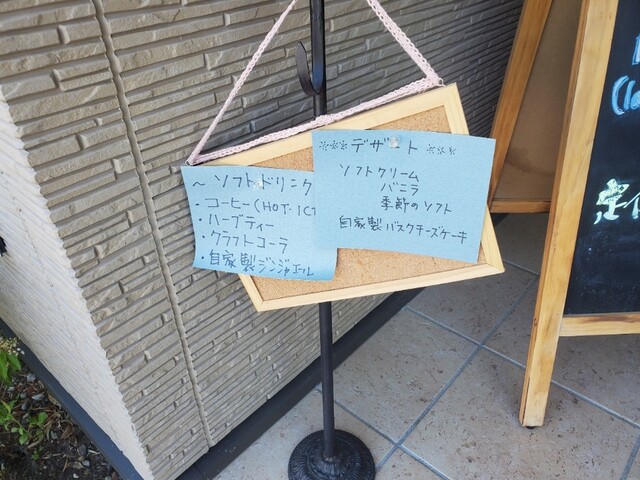 ～ ソフトドリンク
・コーヒー(HOT・IC
・ハーブティー
・クラフトコーラ
・自家製ジンジャエール
※※※ デザート ※※※
ソフトクリーム
バニラ
季節のソフト
自家製バスクチーズケーキ